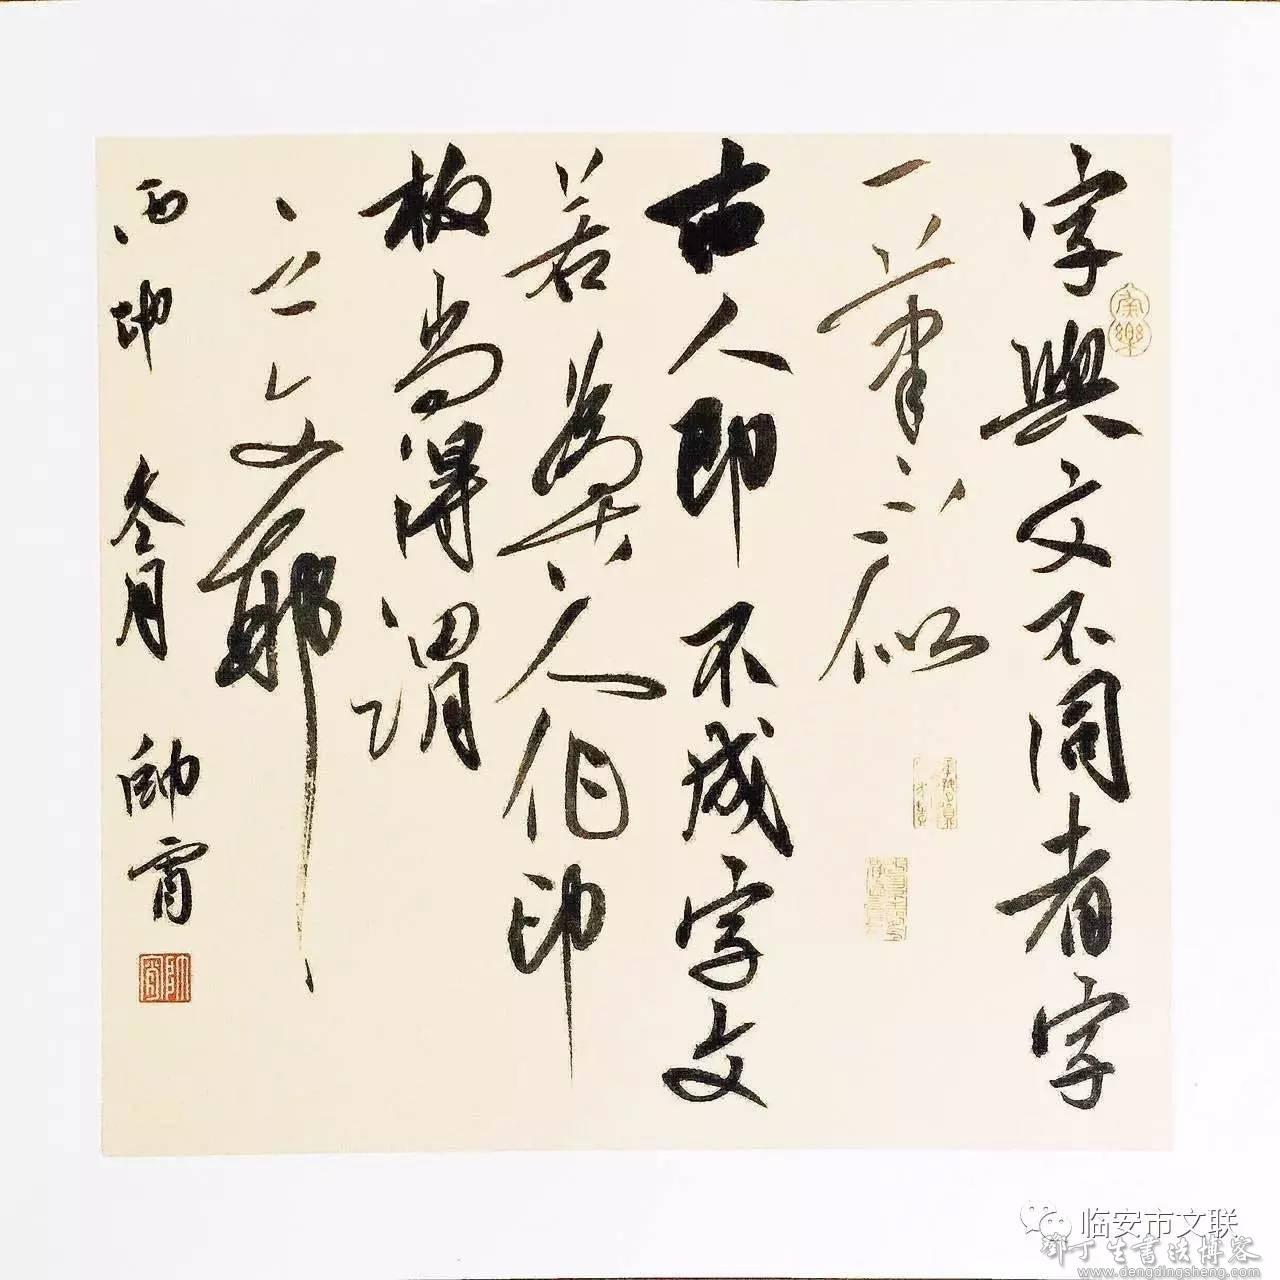 字與文不同者字
一筆不似
古人即不成字文
若為古人作印
板尚得謂
之文耶
丙申冬月帥霄
临安市文联
邓丁生書法博客
www.dengdingsheng.com